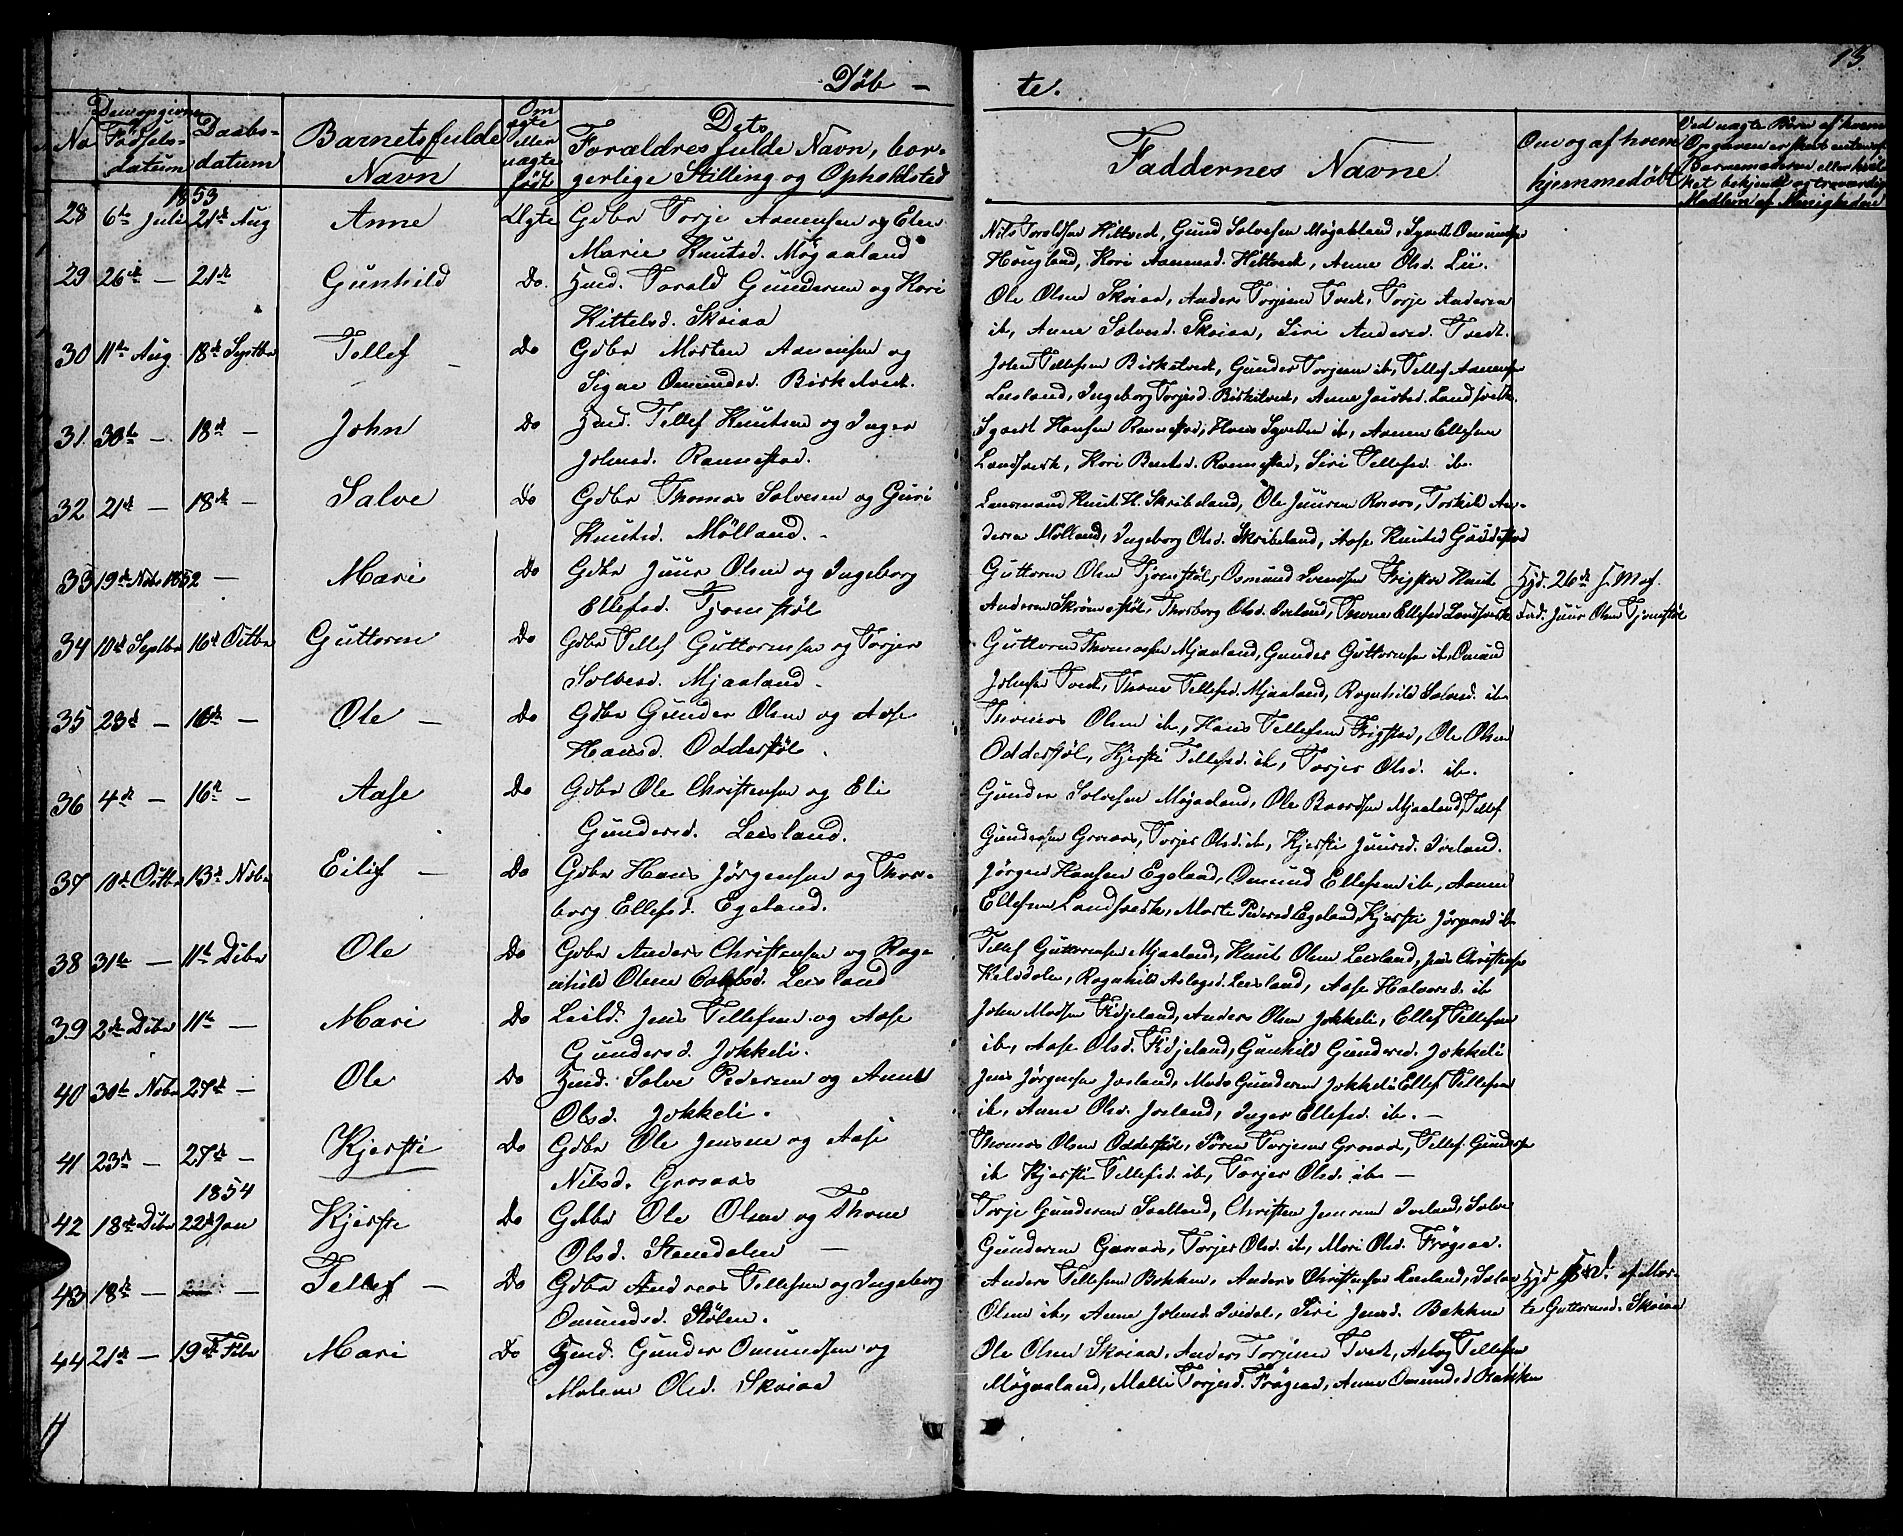 Döb - te.
13
No
Den opgivne Födsels- datum
Daabs- datum
Barnets fulde Navn
Om ægte eller uægte född
Dets Forældres fulde Navn, bor-
gerlige Stilling og Opholdsted
Faddernes Navne
Om og af hvem hjemmedöbt
Ved uægte Börn af hvem
Opgaven er
Barnemoderen eller
ket bekjendt og troværdigt
Medlem af Menigheden
1853
28 6te Juli 21de Aug Anne Ægte Gdbr Torje Aanensen og Elen
Marie Knutsd. Møgaaland
Nils Toraldsen Hiltvedt, Gund Salvesen Møgaaland, Syvert Omundsen
Haugland, Kari Aanensd. Hiltvedt, Anne Olsd. Lii.
29 26de — 21de Gunhild Do. Hmd. Torald Gundersen og Kari
Kittelsd. Skaiaa
Ole Olsen Skaiaa, Anders Torjesen Tvedt, Torje Andersen
ib, Anne Salvesd. Skaiaa, Siri Andersd. Tvedt.
30 11te Aug 18de Septbr Tellef — Do Gdbr Morten Aanensen og
Signe Omundsd. Birketvedt.
John Tellefsen Birketvedt, Gunder Torjesen ib, Tellef Aanensen
Leesland, Ingeborg Torjesd. Birketvedt, Anne Jacobsd. Landsvedk.
31 30te — 18de — John Do Hmd. Tellef Knutsen og Inger
Johnsd. Rannestad.
Syvert Hansen Rannestad, Hans Syvertsen ib, Aanen Ellefsen
Landsverk, Kari Bentsd. Rannestad, Siri Tellefsd. ib.
32 21de — 18de — Salve Do Gdbr Thomas Salvesen og Guri
Knutsd. Mølland. -
Lensmand Knut H. Skribeland, Ole Juursen Rosaas, Torkild An-
dersen Mølland, Ingeborg Olsd. Skribeland, Aase Knutsd
33 19de Nobr 1852 — Mari Do Gdbr Juur Olsen og Ingeborg
Ellefsd. Tjomstøl
Guttorm Olsen Tjomstøl, Osmund Svendsen Frigstad Knut
Andersen Skromstøl, Thorborg Olsd. Iveland, Thone Ellefsd Landsverk
Hjd. 26de af
Fad. Juur Olsen Tjomstøl
34 10de Septbr 16de Octbr Guttorm Do Gdbr Tellef Guttormsen og Torjer
Salvesd. Mjaaland -
Guttorm Thomassen Mjaaland, Gunder Guttormsen ib, Omund
Johnsen Tvedt, Thone Tellefsd. Mjaaland, Ragnhild Salvesd. ib.
35 23de — 16de — Ole — Do Gdbr Gunder Olsen og Aase
Hansd. Odderstøl.
Thomas Olsen ib., Hans Tellefsen Frigstad, Ole Olsen
Odderstøl, Kjersti Tellefsd. ib, Torjer Olsd. ib.
36 4de — 16de — Aase Do Gdbr Ole Christensen og Eli
Gundersd. Leesland.
Gunder Salvesen Møgaaland, Ole Baardsen Mjaaland, Tellef
Gundersen Grosaas, Torjer Olsd. ib, Kjersti Juursd. Iveland.
37 10de Octbr 13de Nobr Eilif — Do Gdbr Hans Jørgensen og Thor-
borg Ellefsd. Egeland.
Jørgen Hansen Egeland, Omund Ellefsen ib, Aanen
Ellefsen Landsverk, Marte Pedersd Egeland, Kjersti Jørgensd ib
38 31te — 11te Dcbr Ole Do Gdbr Anders Christensen og Rag-
nhild Olsen Leesland
Tellef Guttormsen Mjaaland, Knut Olsen Leesland, Jens Christensen
Kelsdalen, Ragnhild Aslagsd. Leesland, Aase Halvorsd. ib
39 2de Dcbr 11te — Mari Do Leild. Jens Tellefsen og Aase
Gundersd. Jokkeli.
John Madsen Fidjeland, Anders Olsen Jokkeli, Ellef Tellefsen
ib, Aase Olsd. Fidjeland, Gunhild Gundersd. Jokkeli
40 30te Nobr 27de — Ole Do Hmd. Salve Pedersen og Anne
Olsd. Jokkeli.
Jens Jørgensen Josland, Mads Gundersen Jokkeli Ellef Tellefsen
ib, Anne Olsd. Josland, Inger Ellefsd. ib. —
41 23de — 27de — Kjersti Do Gdbr Ole Jensen og Aase
Nilsd. Grosaas
Thomas Olsen Odderstøl, Søren Torjesen Grosaas, Tellef Gundersen
ib Kjersti Tellefsd. ib, Torjer Olsd. ib —
1854
42 18de Dcbr 22de Jan Kjersti Do Gdbr Ole Olsen og Thone
Olsd. Stenedalen —
Torje Gundersen Svelland, Christen Jensen Iveland, Salve
Gundersen Grosaas, Torjer Olsd. ib, Mari Olsd. Frøgsaa.
43 18de — — Tellef — Do Gdbr Andreas Tellefsen og Ingeborg
Omundsd. Stølen.
Anders Tellefsen Bakken, Anders Christensen Leesland, Salve
Olsen ib, Anne Johnsd. Ivedal, Siri Jensd. Bakken
Hjd af Mar-
te Guttormsd. Skaiaa
44 21de — 19de Febr Mari Do Hmd. Gunder Omundsen og
Malene Olsd. Skaiaa
Ole Olsen Skaiaa, Anders Torjesen Tvedt, Aslag Tellefsen
Møgaaland, Malli Torjesd. Frøgsaa, Anne Omundsd Bakken